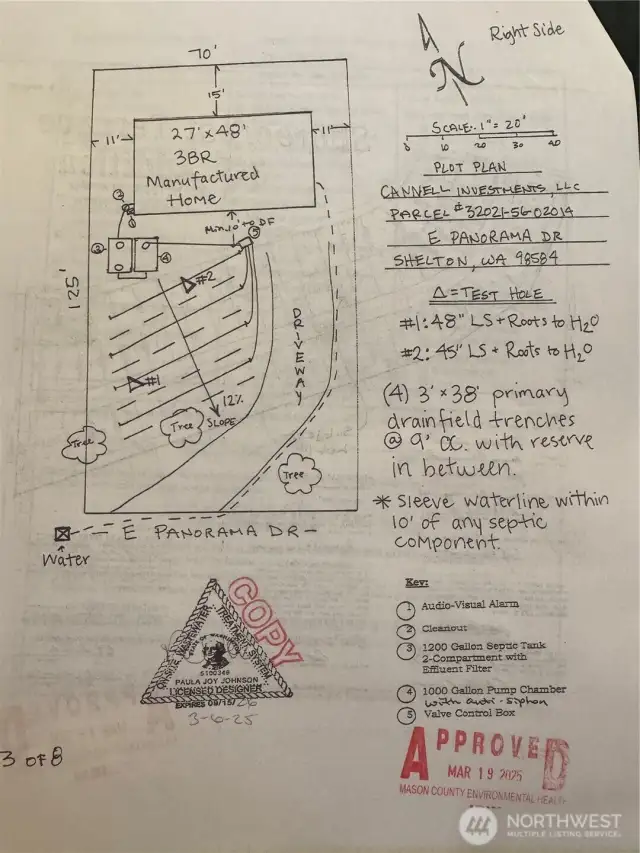 70'
Right Side
N
15'
27' x 48'
3BR
Manufactured
Home
11'
11'
SCALE: 1" = 20'
0 10 20 30 40
PLOT PLAN
CANNELL INVESTMENTS, LLC
PARCEL # 32021-56-02014
E PANORAMA DR
SHELTON, WA 98584
Δ = TEST HOLE
#1: 48" LS + Roots to H2O
#2: 45" LS + Roots to H2O
(4) 3' x 38' primary
drainfield trenches
@ 9' OC. with reserve
in between.
* Sleeve waterline within
10' of any septic
component.
Min. 10' to DF
125'
1
2
3
4
5
#2
#1
DRIVEWAY
12%
SLOPE
Tree
Tree
Tree
E PANORAMA DR
Water
Key:
1 Audio-Visual Alarm
2 Cleanout
3 1200 Gallon Septic Tank
2-Compartment with
Effluent Filter
4 1000 Gallon Pump Chamber
with anti-siphon
5 Valve Control Box
COPY
5100346
PAULA JOY JOHNSON
LICENSED DESIGNER
EXPIRES 09/15/26
3-6-25
3 OF 8
APPROVED
MAR 19 2025
MASON COUNTY ENVIRONMENTAL HEALTH
NORTHWEST
MULTIPLE LISTING SERVICE